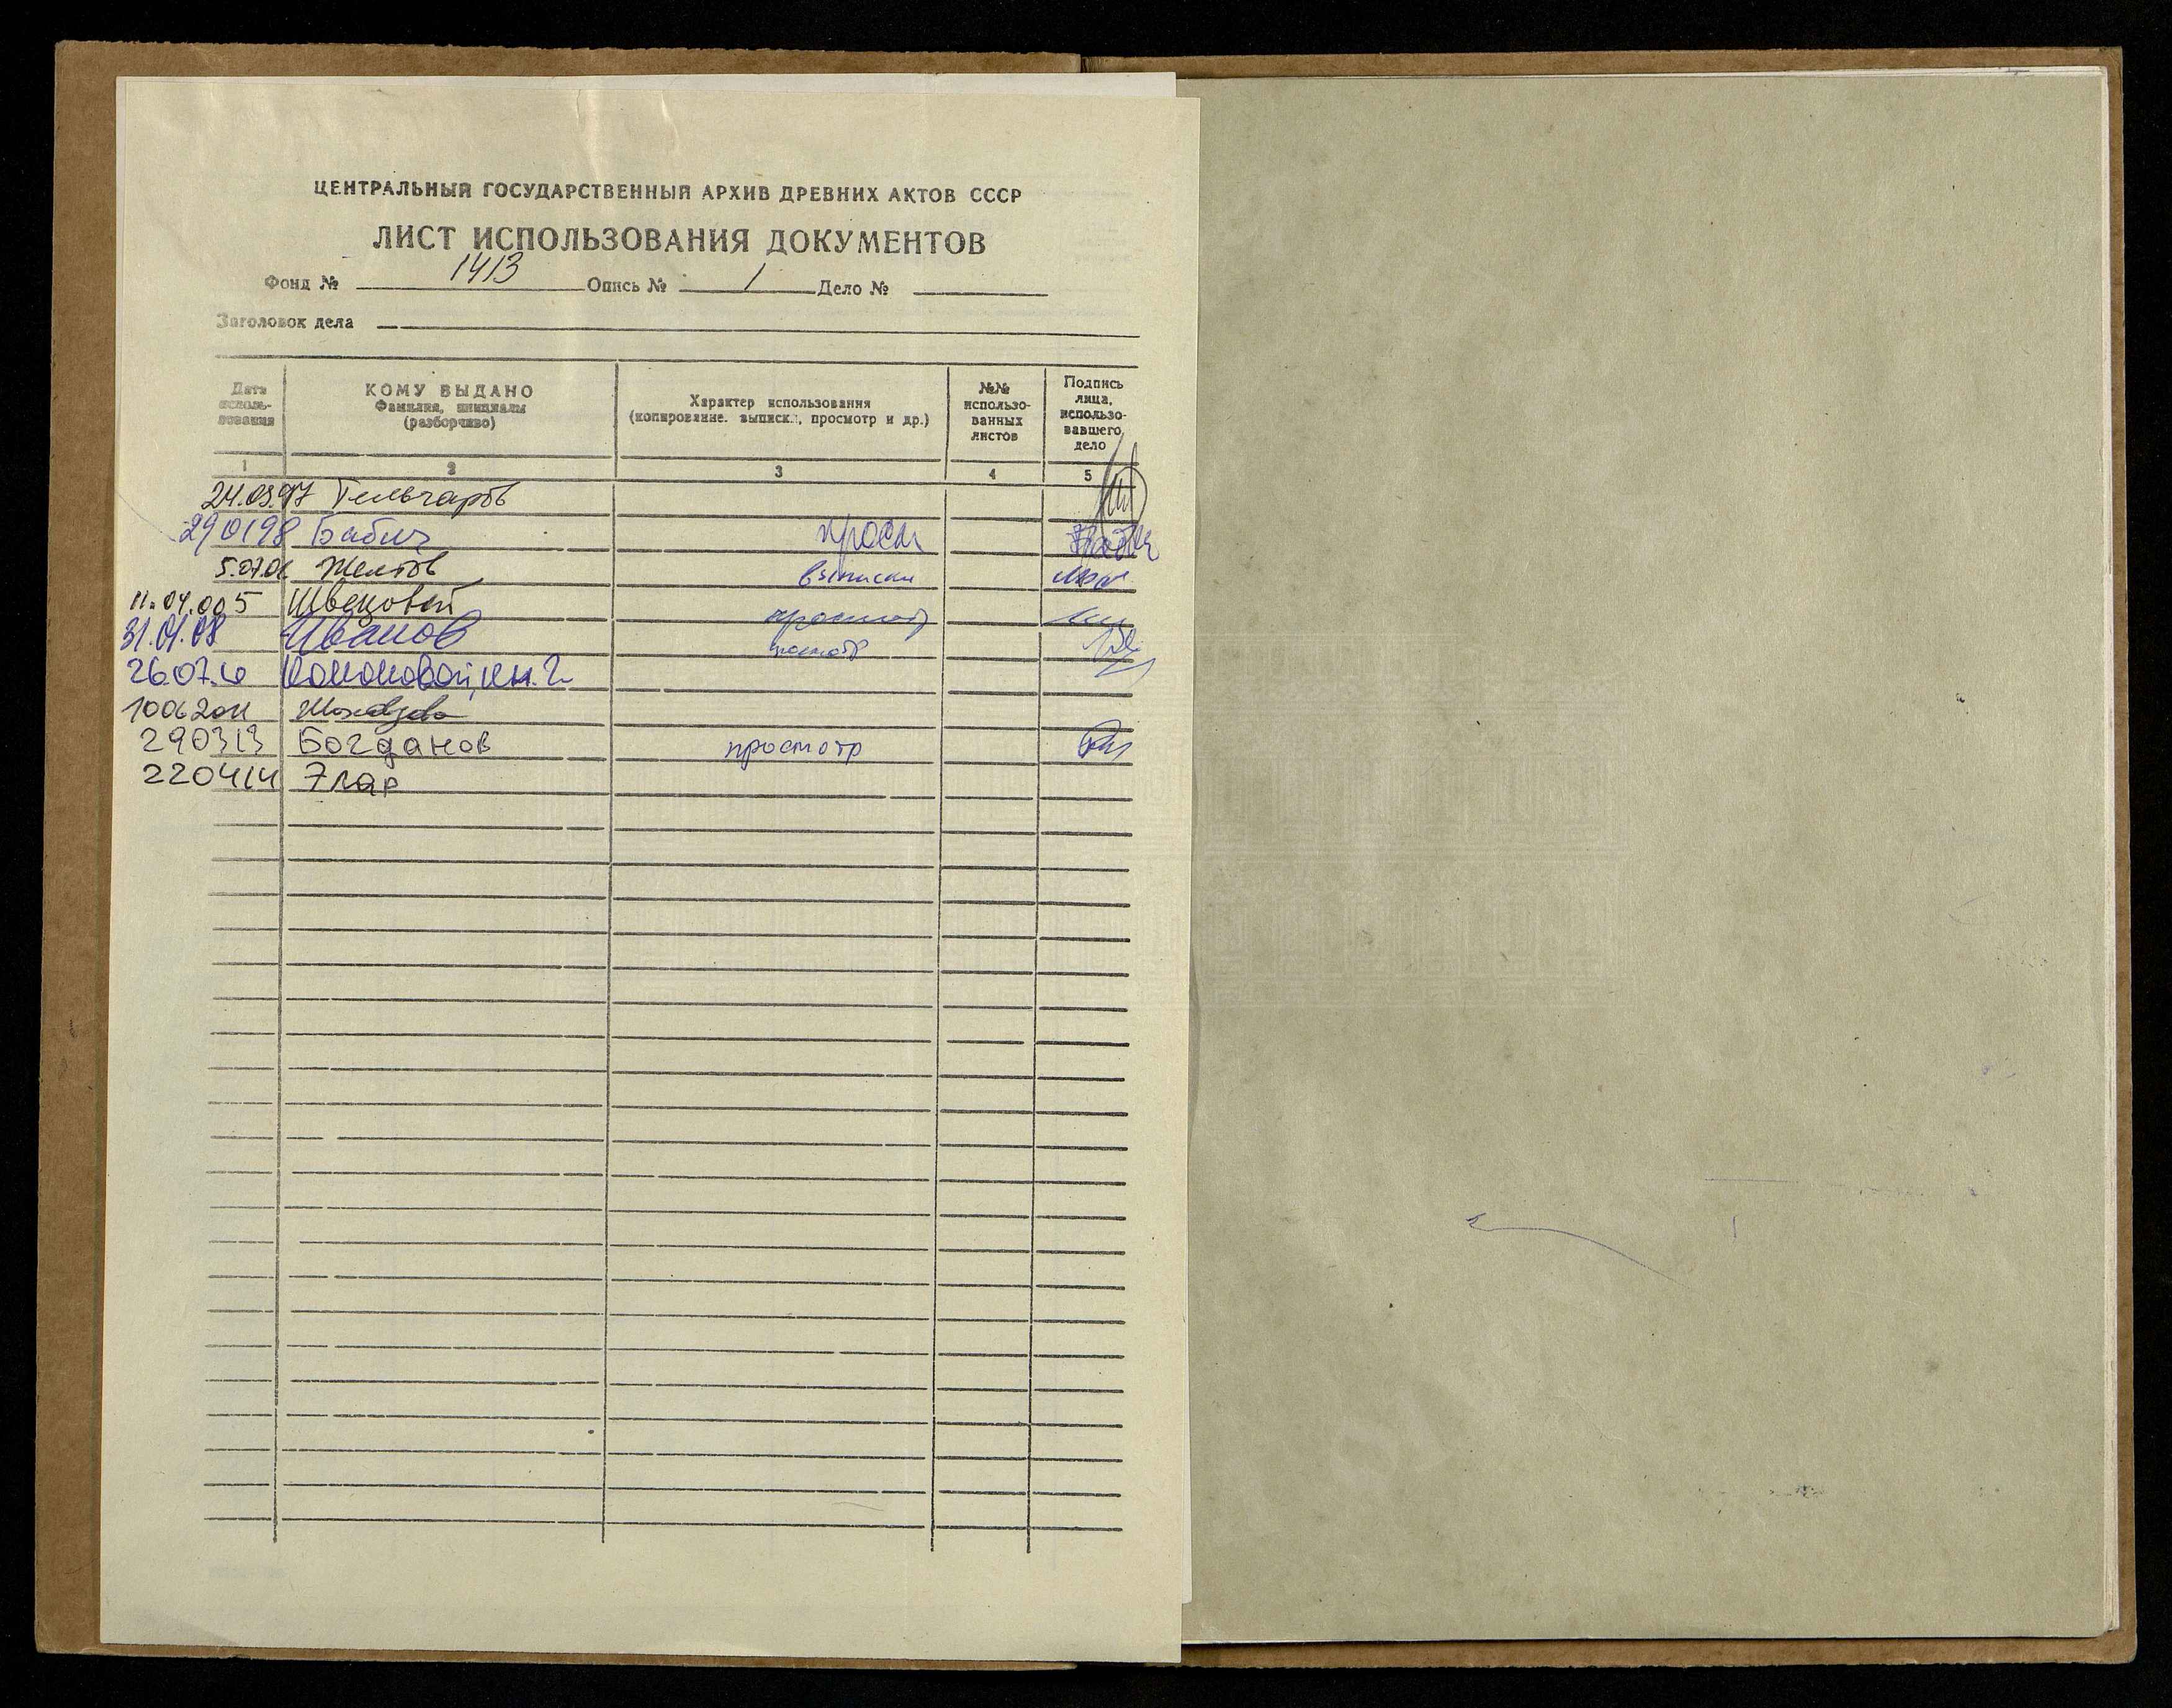 ЦЕНТРАЛЬНЫЙ ГОСУДАРСТВЕННЫЙ АРХИВ ДРЕВНИХ АКТОВ СССР
ЛИСТ ИСПОЛЬЗОВАНИЯ ДОКУМЕНТОВ
Фонд № 1413 Опись № 1 Дело №
Заголовок дела
Дата использования
КОМУ ВЫДАНО
Фамилия, инициалы
(разборчиво)
Характер использования
(копирование, выписки, просмотр и др.)
№№
использо-
ванных
листов
Подпись
лица,
использо-
вавшего
дело
1 2 3 4 5
24.09.97
290198 Бабич просм
5.07.01 Желтов выписки
11.04.005 просмотр
31.01.08 Иванов
26.07.10
10062011
290313 Богданов просмотр
220414 Элар